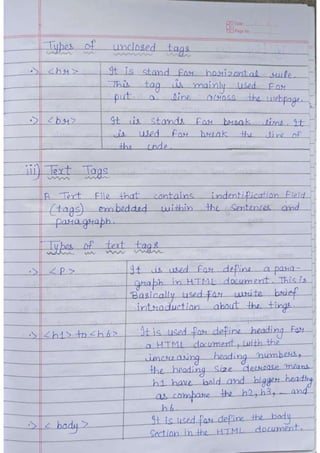 Date
Page No.
Types of unclosed tags
·> <hr> It is stand for horizontal rule.
This tag is mainly used for
put a line across the webpage.
·> <br> It is stands for break line. It
is used for break the line of
the code.
iii) Text Tags
A Text File that contains indentification Field
(tags) embedded within the sentences and
paragraph.
Types of text tags
·> <P> It is used for define a para-
graph in HTML document. This is
Basically used for write brief
introduction about the tings.
·> <h1> to <h6> It is used for define heading for
a HTML document, with the
increasing heading numbers,
the heading size decrease means
h1 have bold and bigger heading
as compare the h2, h3, - and
h6.
·> < body > It is used for define the body
Section in the HTML document.